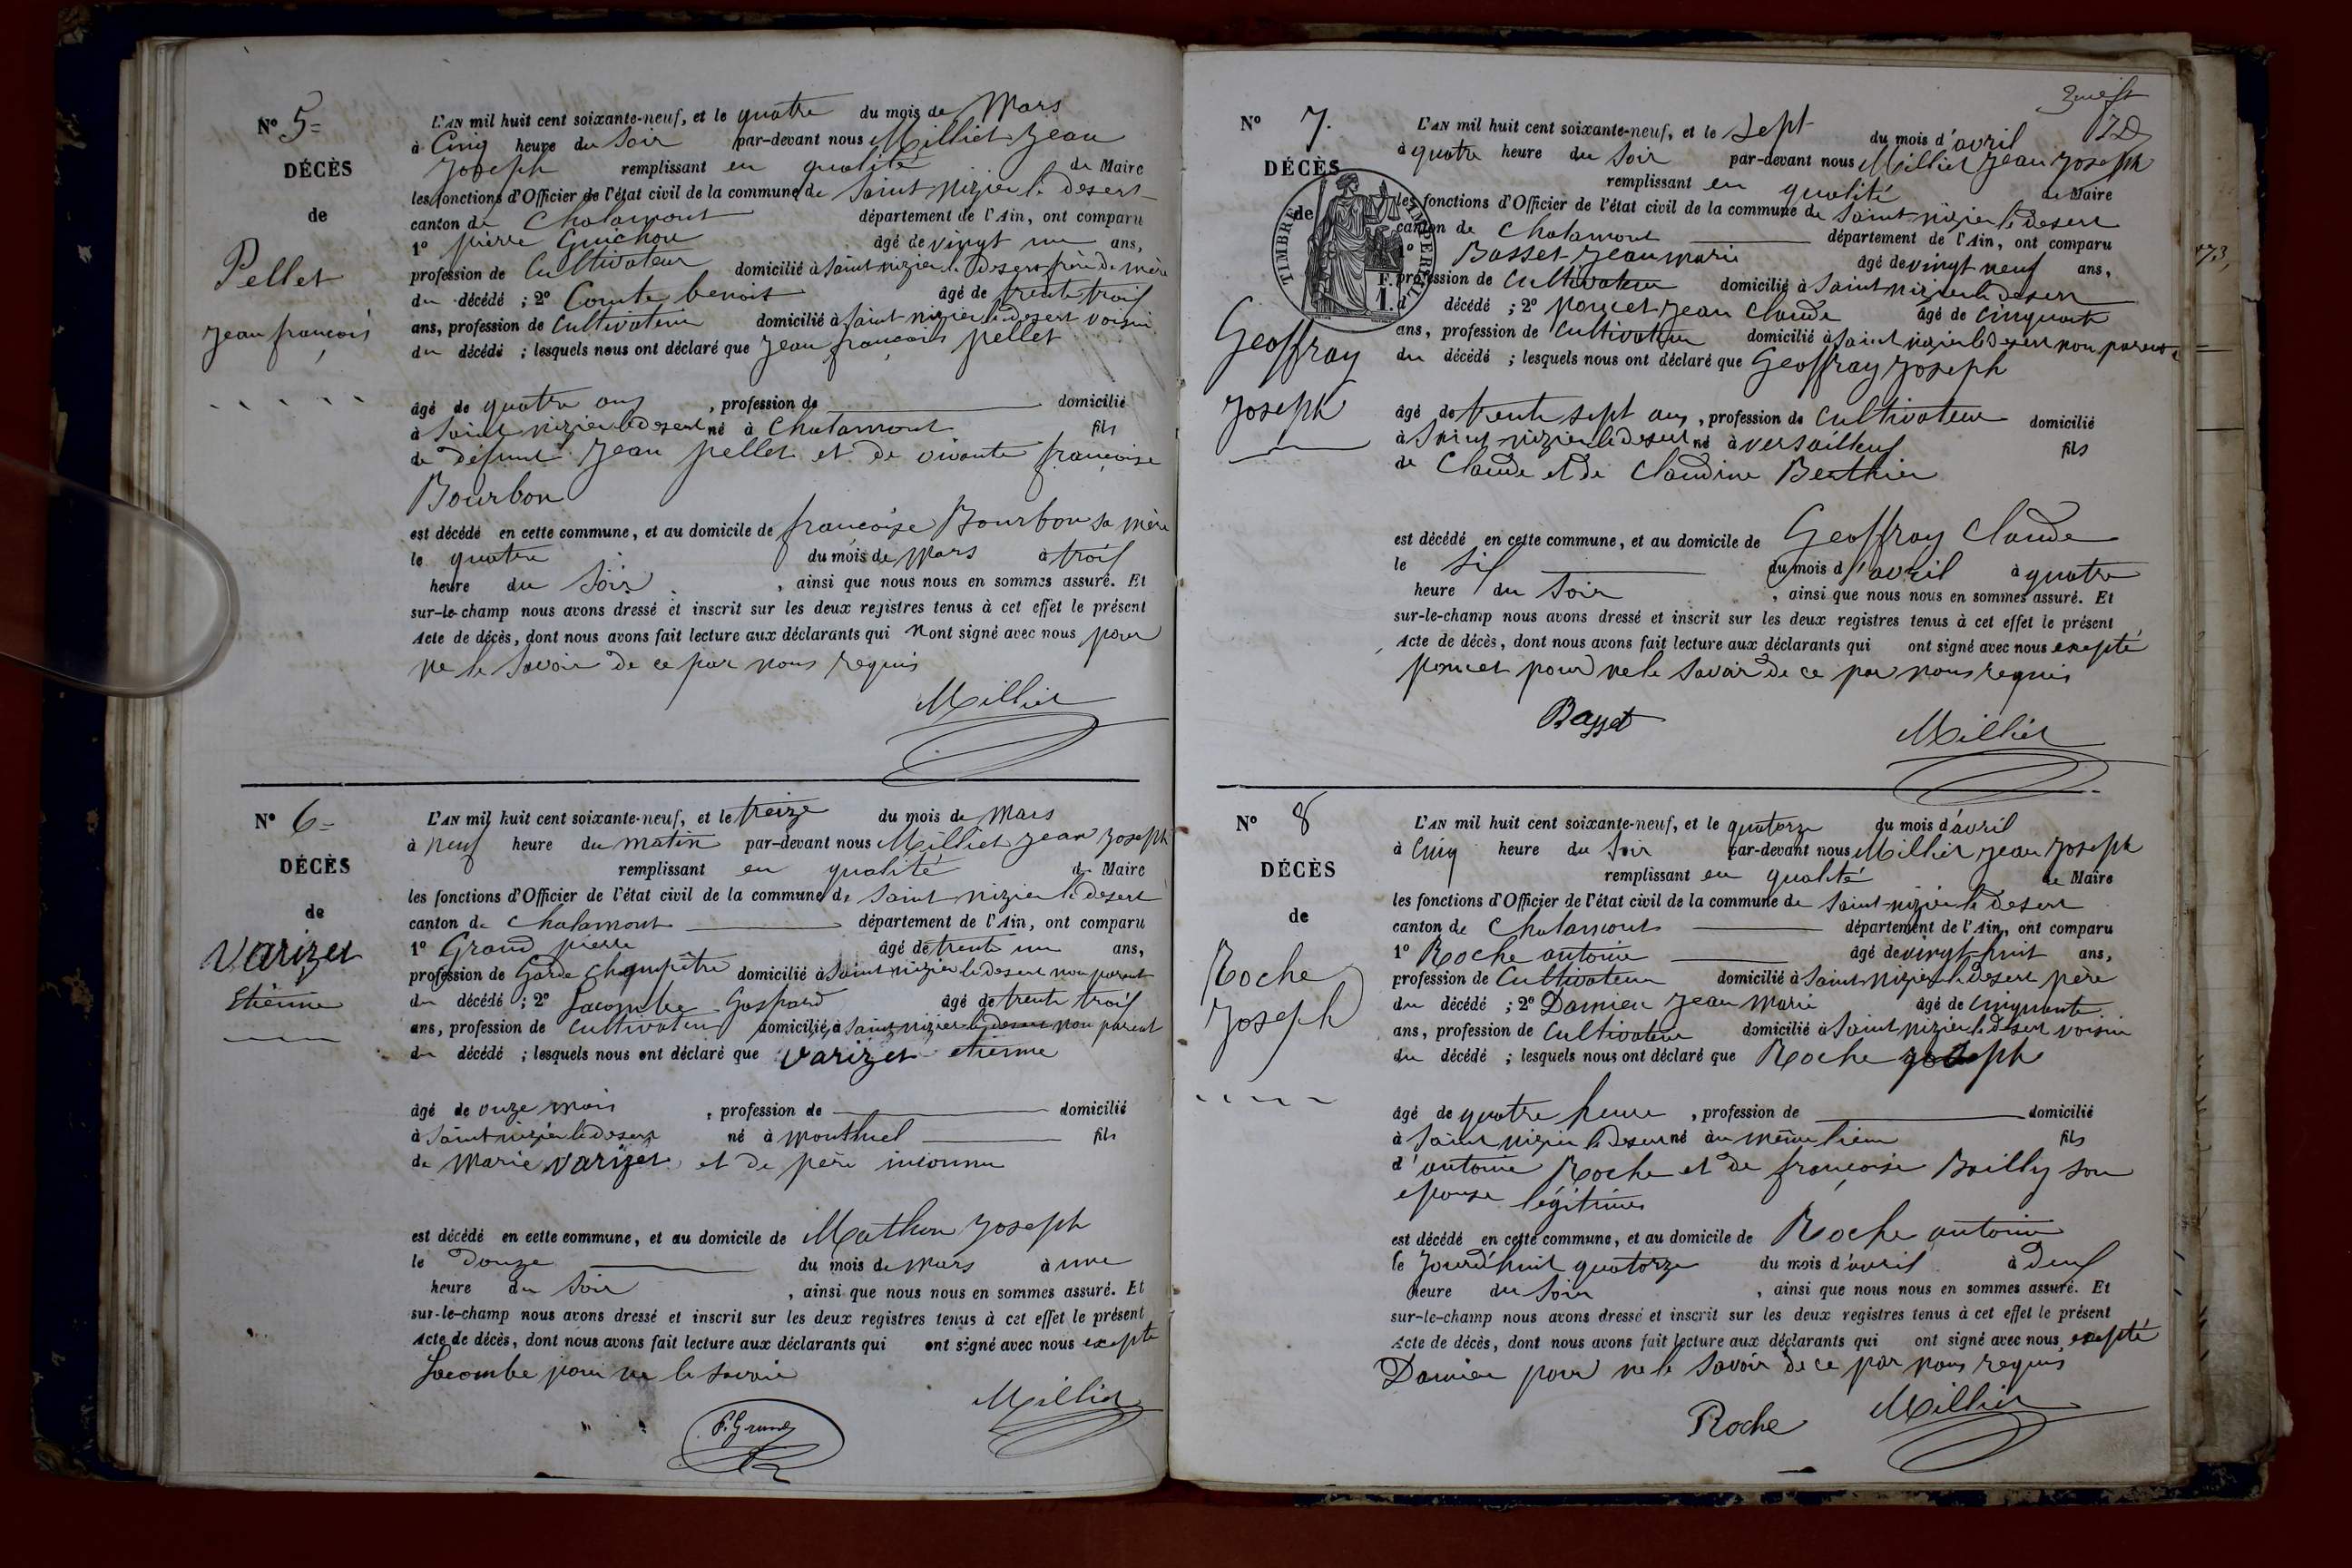 N° 5=
DÉCÈS
de
Pellet
Jean françois
L'AN mil huit cent soixante-neuf, et le quatre du mois de Mars
à Cinq heure du soir par-devant nous Milliet Jean
Joseph remplissant en qualité de Maire
les fonctions d'Officier de l'état civil de la commune de Saint nizier le desert
canton de Chalamont département de l'Ain, ont comparu
1° pierre Guichon âgé de vingt un ans,
profession de Cultivateur domicilié à Saint nizier le Desert frère de mère
du décédé ; 2° Comte benoit âgé de trente trois
ans, profession de Cultivateur domicilié à Saint nizier le desert voisin
du décédé ; lesquels nous ont déclaré que Jean françois pellet
âgé de quatre ans, profession de domicilié
à Saint nizier le desert né à Chalamont fils
de défunt Jean pellet et de vivante françoise
Bourbon
est décédé en cette commune, et au domicile de françoise Bourbon sa mère
le quatre du mois de Mars à trois
heure du Soir, ainsi que nous nous en sommes assuré. Et
sur-le-champ nous avons dressé et inscrit sur les deux registres tenus à cet effet le présent
Acte de décès, dont nous avons fait lecture aux déclarants qui n'ont signé avec nous pour
ne le Savoir de ce par nous requis
Milliet
N° 6=
DÉCÈS
de
Varizet
Etienne
L'AN mil huit cent soixante-neuf, et le treize du mois de Mars
à neuf heure du matin par-devant nous Milliet Jean Joseph
remplissant en qualité de Maire
les fonctions d'Officier de l'état civil de la commune de Saint nizier le desert
canton de Chalamont département de l'Ain, ont comparu
1° Grand pierre âgé de trente un ans,
profession de Garde Champêtre domicilié à Saint nizier le desert non parent
du décédé ; 2° Lacombe Gaspard âgé de trente trois
ans, profession de Cultivateur domicilié à Saint nizier le desert non parent
du décédé ; lesquels nous ont déclaré que Varizet etienne
âgé de onze mois, profession de domicilié
à Saint nizier le desert né à Montluel fils
de Marie Varizet et de père inconnu
est décédé en cette commune, et au domicile de Mathon Joseph
le Douze du mois de Mars à une
heure du Soir, ainsi que nous nous en sommes assuré. Et
sur-le-champ nous avons dressé et inscrit sur les deux registres tenus à cet effet le présent
Acte de décès, dont nous avons fait lecture aux déclarants qui ont signé avec nous excepté
Lacombe pour ne le savoir
P. Grand Milliet
N° 7.
DÉCÈS
de
Geoffray
Joseph
TIMBRE IMPERIAL
L'AN mil huit cent soixante-neuf, et le Sept du mois d'avril
à quatre heure du Soir par-devant nous Milliet Jean Joseph
remplissant en qualité de Maire
les fonctions d'Officier de l'état civil de la commune de Saint nizier le desert
canton de Chalamont département de l'Ain, ont comparu
1° Basset Jean marie âgé de vingt neuf ans,
profession de Cultivateur domicilié à Saint nizier le desert
d décédé ; 2° poncet Jean Claude âgé de Cinquante
ans, profession de Cultivateur domicilié à Saint nizier le Desert non parents
du décédé ; lesquels nous ont déclaré que Geoffray Joseph
âgé de trente sept ans, profession de Cultivateur domicilié
à Saint nizier le desert né à versailleux fils
de Claude et de Claudine Berthier
est décédé en cette commune, et au domicile de Geoffray Claude
le Six du mois d'avril à quatre
heure du Soir, ainsi que nous nous en sommes assuré. Et
sur-le-champ nous avons dressé et inscrit sur les deux registres tenus à cet effet le présent
Acte de décès, dont nous avons fait lecture aux déclarants qui ont signé avec nous excepté
poncet pour ne le Savoir de ce par nous requis
Basset Milliet
N° 8
DÉCÈS
de
Roche
Joseph
L'AN mil huit cent soixante-neuf, et le quatorze du mois d'avril
à Cinq heure du Soir par-devant nous Milliet Jean Joseph
remplissant en qualité de Maire
les fonctions d'Officier de l'état civil de la commune de Saint nizier le desert
canton de Chalamont département de l'Ain, ont comparu
1° Roche antoine âgé de vingt huit ans,
profession de Cultivateur domicilié à Saint nizier le Desert père
du décédé ; 2° Damien Jean Marie âgé de Cinquante
ans, profession de Cultivateur domicilié à Saint nizier le desert voisin
du décédé ; lesquels nous ont déclaré que Roche Joseph
âgé de quatre heure, profession de domicilié
à Saint nizier le Desert né au même lieu fils
d'antoine Roche et de françoise Bailly son
epouse légitime
est décédé en cette commune, et au domicile de Roche antoine
le Jourd'huit quatorze du mois d'avril à deux
heure du Soir, ainsi que nous nous en sommes assuré. Et
sur-le-champ nous avons dressé et inscrit sur les deux registres tenus à cet effet le présent
Acte de décès, dont nous avons fait lecture aux déclarants qui ont signé avec nous excepté
Damien pour ne le Savoir de ce par nous requis
Roche Milliet